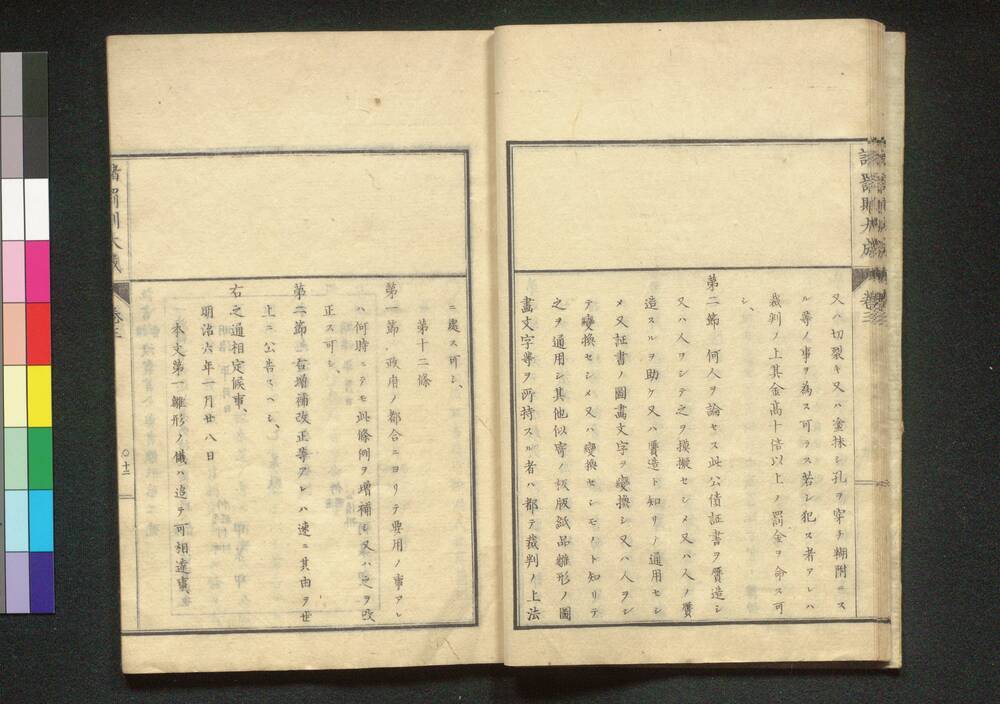 又ハ切裂キ又ハ塗抹シ孔ヲ穿チ糊附ニス
ル等ノ事ヲ為ス可ラス若シ犯ス者アレハ
裁判ノ上其金高十倍以上ノ罰金ヲ命ス可
シ、
第二節 何人ヲ論セス此公債証書ヲ贋造シ
又ハ人ヲシテ之ヲ摸擬セシメ又ハ人ノ贋
造スルヲ助ケ又ハ贋造ト知リノ通用セシ
メ又証書ノ圖畫文字ヲ變換シ又ハ人ヲシ
テ變換セシメ又ハ變換セシモノト知リテ
之ヲ通用シ其他似寄ノ板版紙品雛形ノ圖
畫文字等ヲ所持スル者ハ都テ裁判ノ上法
ニ處ス可シ、
第十二條
第一節 政府ノ都合ニヨリテ要用ノ事アレ
ハ何時ニテモ此條例ヲ増補シ又ハ之ヲ改
正ス可シ、
第二節 右増補改正等アレハ速ニ其由ヲ世
上ニ公告スヘシ、
右之通相定候事、
明治六年一月廿八日
本文第一雛形ノ儀ハ追テ可相達事
十二